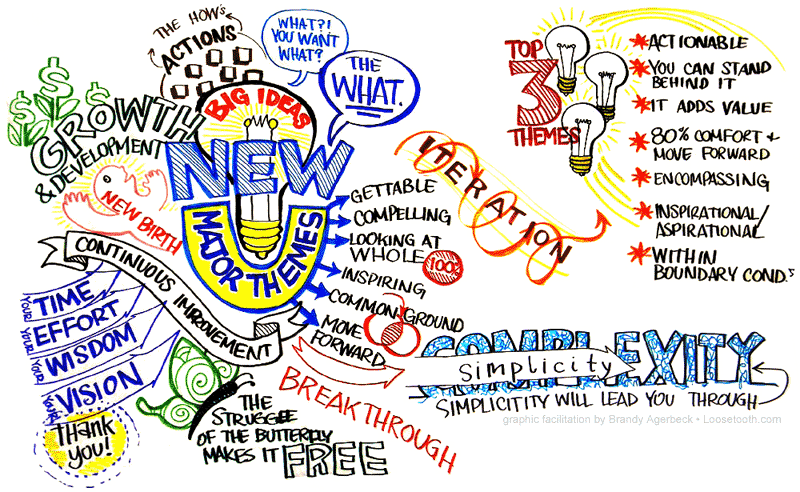 THE HOW'S
ACTIONS
WHAT?!
YOU WANT
WHAT?
THE
WHAT.
BIG IDEAS
GROWTH
& DEVELOPMENT
NEW
MAJOR THEMES
NEW BIRTH
CONTINUOUS IMPROVEMENT
YOUR TIME
YOUR EFFORT
YOUR WISDOM
YOUR VISION
THANK
YOU!
GETTABLE
COMPELLING
LOOKING AT
WHOLE 100%
INSPIRING
COMMON GROUND
MOVE
FORWARD
THE
STRUGGLE
OF THE BUTTERFLY
MAKES IT FREE
BREAKTHROUGH
ITERATION
TOP
3
THEMES
* ACTIONABLE
* YOU CAN STAND
BEHIND IT
* IT ADDS VALUE
* 80% COMFORT +
MOVE FORWARD
* ENCOMPASSING
* INSPIRATIONAL/
ASPIRATIONAL
* WITHIN
BOUNDARY COND.S
COMPLEXITY
Simplicity
SIMPLICITITY WILL LEAD YOU THROUGH
graphic facilitation by Brandy Agerbeck • Loosetooth.com